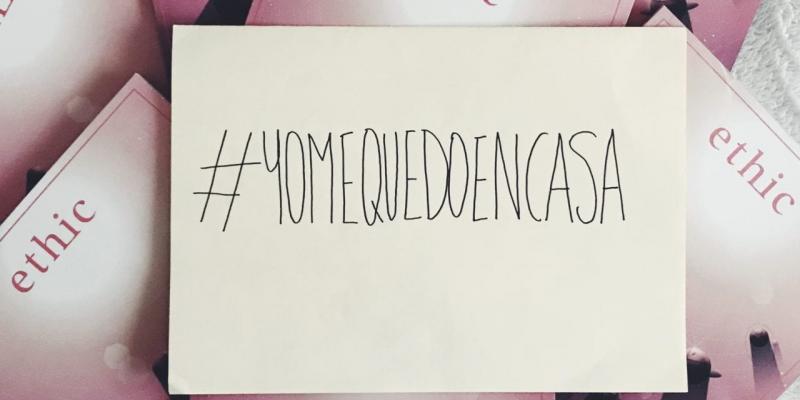 #YOMEQUEDOENCASA
ethic
ethic